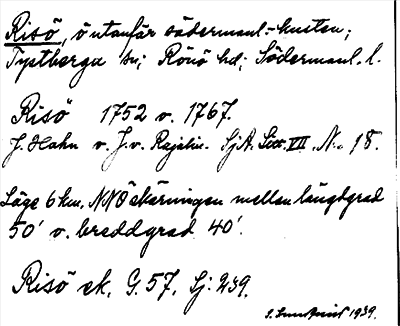 Risö, ö utanför södermanl.-kusten;
Tystberga sn; Rönö hd; Södermanl. l.
Risö 1752 o. 1767.
J. Hahn o. J. v. Rajalin. SjA. Litt. VII. No 18.
Läge 6 km. NNÖ skärningen mellan längdgrad
50' o. breddgrad 40'.
Risö ek. G. 57. Sj: 239.
1939.